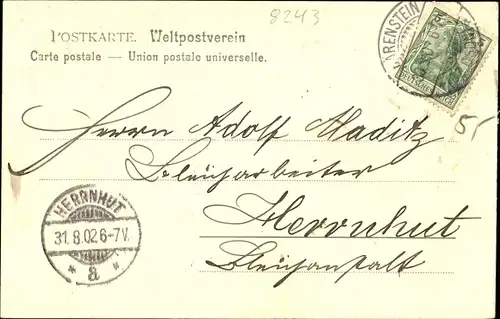 8243
POSTKARTE. Weltpostverein
Carte postale — Union postale universelle.
ARENSTEIN
Herrn Adolf Maditz
Bleicharbeiter
Herrnhut
Bleichanstalt
5
HERRNHUT
31.8.02 6-7V.
* a *